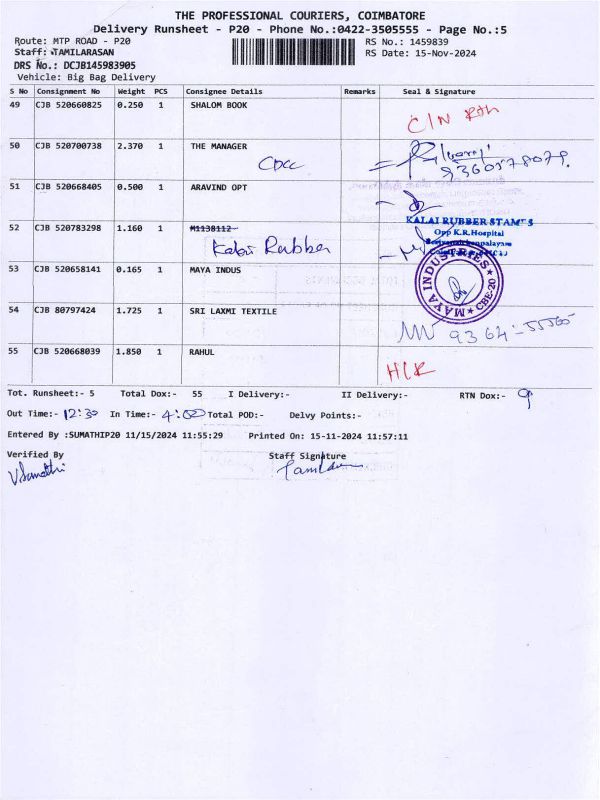 THE PROFESSIONAL COURIERS, COIMBATORE
Delivery Runsheet - P20 - Phone No.:0422-3505555 - Page No.:5
Route: MTP ROAD - P20 RS No.: 1459839
Staff: TAMILARASAN RS Date: 15-Nov-2024
DRS No.: DCJB145983905
Vehicle: Big Bag Delivery
S No Consignment No Weight PCS Consignee Details Remarks Seal & Signature
49 CJB 520660825 0.250 1 SHALOM BOOK C/N Rtn
50 CJB 520700738 2.370 1 THE MANAGER
CDCC 9360578079.
51 CJB 520668405 0.500 1 ARAVIND OPT
KALAI RUBBER STAMPS
52 CJB 520783298 1.160 1 M1138112 Opp K.R.Hospital
Kalai Rubber
53 CJB 520658141 0.165 1 MAYA INDUS MAYA INDUSTRIES CBE-20
54 CJB 80797424 1.725 1 SRI LAXMI TEXTILE
55 CJB 520668039 1.850 1 RAHUL
Tot. Runsheet:- 5 Total Dox:- 55 I Delivery:- II Delivery:- RTN Dox:- 9
Out Time:- 12:30 In Time:- 4:00 Total POD:- Delvy Points:-
Entered By :SUMATHIP20 11/15/2024 11:55:29 Printed On: 15-11-2024 11:57:11
Verified By Staff Signature
VSumathi